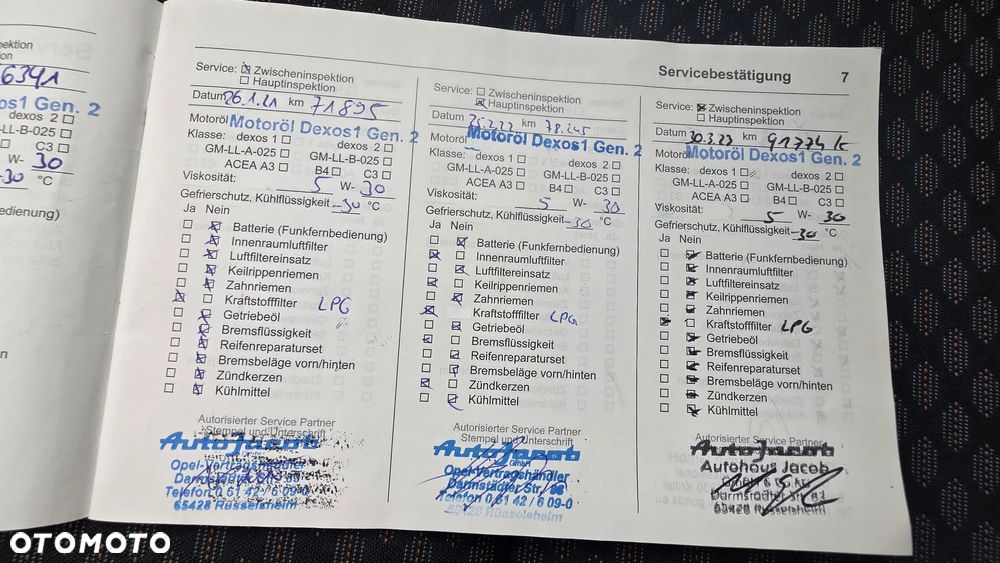 pektion
ion
6341
os1 Gen. 2
dexos 2
M-LL-B-025
C3
W- 30
-30 °C
nbedienung)
Servicebestätigung 7
Service: Zwischeninspektion
Hauptinspektion
Datum 26.1.21 km 71895
Motoröl Motoröl Dexos1 Gen. 2
Klasse: dexos 1 dexos 2
GM-LL-A-025 GM-LL-B-025
ACEA A3 B4 C3
Viskosität: 5 W- 30
Gefrierschutz, Kühlflüssigkeit -30 °C
Ja Nein
Batterie (Funkfernbedienung)
Innenraumluftfilter
Luftfiltereinsatz
Keilrippenriemen
Zahnriemen
Kraftstofffilter LPG
Getriebeöl
Bremsflüssigkeit
Reifenreparaturset
Bremsbeläge vorn/hinten
Zündkerzen
Kühlmittel
Autorisierter Service Partner
Stempel und Unterschrift
AutoJacob
Opel-Vertragshändler
Darmstädter Str. 
Telefon 0 61 42 / 6 09-0
65428 Rüsselsheim
Service: Zwischeninspektion
Hauptinspektion
Datum 25.2.22 km 78.245
Motoröl Motoröl Dexos1 Gen. 2
Klasse: dexos 1 dexos 2
GM-LL-A-025 GM-LL-B-025
ACEA A3 B4 C3
Viskosität: 5 W- 30
Gefrierschutz, Kühlflüssigkeit -30 °C
Ja Nein
Batterie (Funkfernbedienung)
Innenraumluftfilter
Luftfiltereinsatz
Keilrippenriemen
Zahnriemen
Kraftstofffilter LPG
Getriebeöl
Bremsflüssigkeit
Reifenreparaturset
Bremsbeläge vorn/hinten
Zündkerzen
Kühlmittel
Autorisierter Service Partner
Stempel und Unterschrift
AutoJacob
GmbH
Opel-Vertragshändler
Darmstädter Str.
Telefon 0 61 42 / 6 09-0
65428 Rüsselsheim
Service: Zwischeninspektion
Hauptinspektion
Datum 30.3.23 km 91774
Motoröl Motoröl Dexos1 Gen. 2
Klasse: dexos 1 dexos 2
GM-LL-A-025 GM-LL-B-025
ACEA A3 B4 C3
Viskosität: 5 W- 30
Gefrierschutz, Kühlflüssigkeit -30 °C
Ja Nein
Batterie (Funkfernbedienung)
Innenraumluftfilter
Luftfiltereinsatz
Keilrippenriemen
Zahnriemen
Kraftstofffilter LPG
Getriebeöl
Bremsflüssigkeit
Reifenreparaturset
Bremsbeläge vorn/hinten
Zündkerzen
Kühlmittel
Autorisierter Service Partner
AutoJacob
Autohaus Jacob
Darmstädter Str.
65428 Rüsselsheim
OTOMOTO